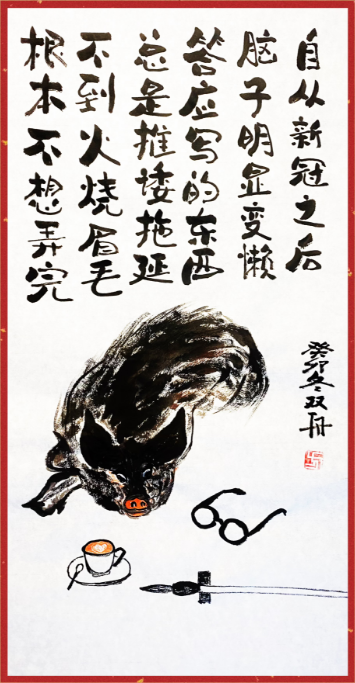 自从新冠之后
脑子明显变懒
答应写的东西
总是推诿拖延
不到火烧眉毛
根本不想弄完
癸卯冬双舟